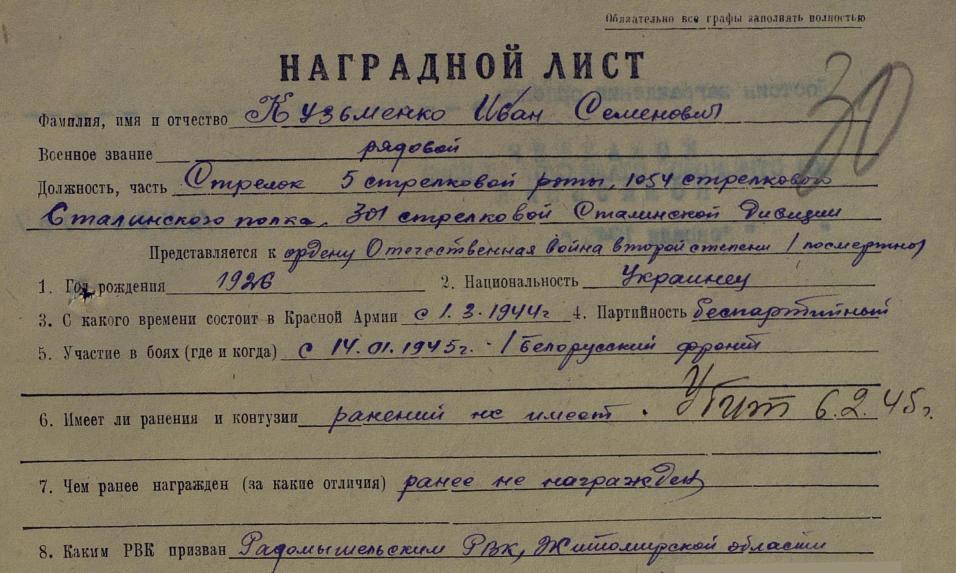 Обязательно все графы заполнять полностью
30
НАГРАДНОЙ ЛИСТ
Фамилия, имя и отчество Кузьменко Иван Семенович
Военное звание рядовой
Должность, часть Стрелок 5 стрелковой роты, 1054 стрелкового
Сталинского полка, 301 стрелковой Сталинской Дивизии
Представляется к ордену Отечественная война второй степени /посмертно/
1. Год рождения 1926 2. Национальность Украинец
3. С какого времени состоит в Красной Армии с 1.3.1944г 4. Партийность беспартийный
5. Участие в боях (где и когда) с 14.01.1945г. - 1 Белорусский фронт
6. Имеет ли ранения и контузии ранений не имеет. Убит 6.2.45г.
7. Чем ранее награжден (за какие отличия) ранее не награжден
8. Каким РВК призван Радомышельским РВК, Житомирской области